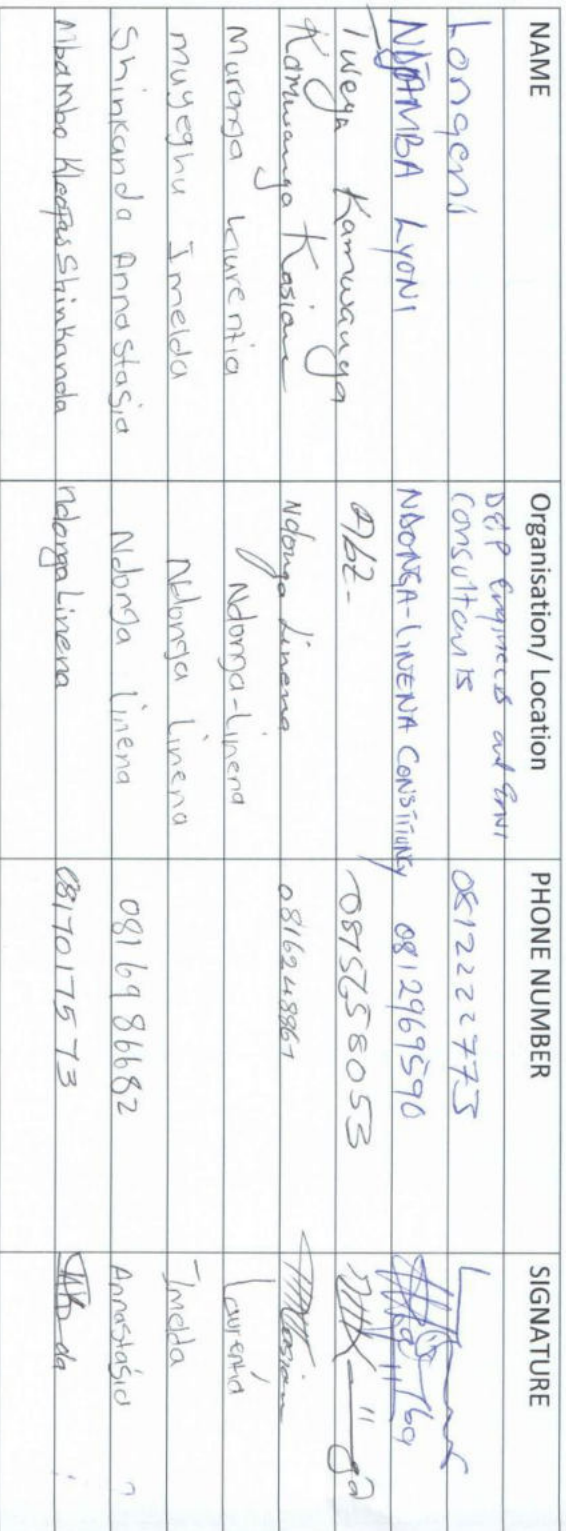 NAME Organisation/ Location PHONE NUMBER SIGNATURE
Longeni D&P Engineers and Envi
Consultants 0812222773
NDJAMBA LYONI NDONGA-LINENA CONSTITUNSY 0812969590
Kamwanga 0815658053
Kamwanga Kasian Ndonga Linena 0816248861
Muronga Laurentia Ndonga-Linena Laurentia
Muyeghu Imelda Ndonga Linena Imelda
Shinkanda Annastasia Ndonga Linena 0816986682 Annastasia
Mbambo Kleofas Shinkanda Ndonga Linena 0817017573